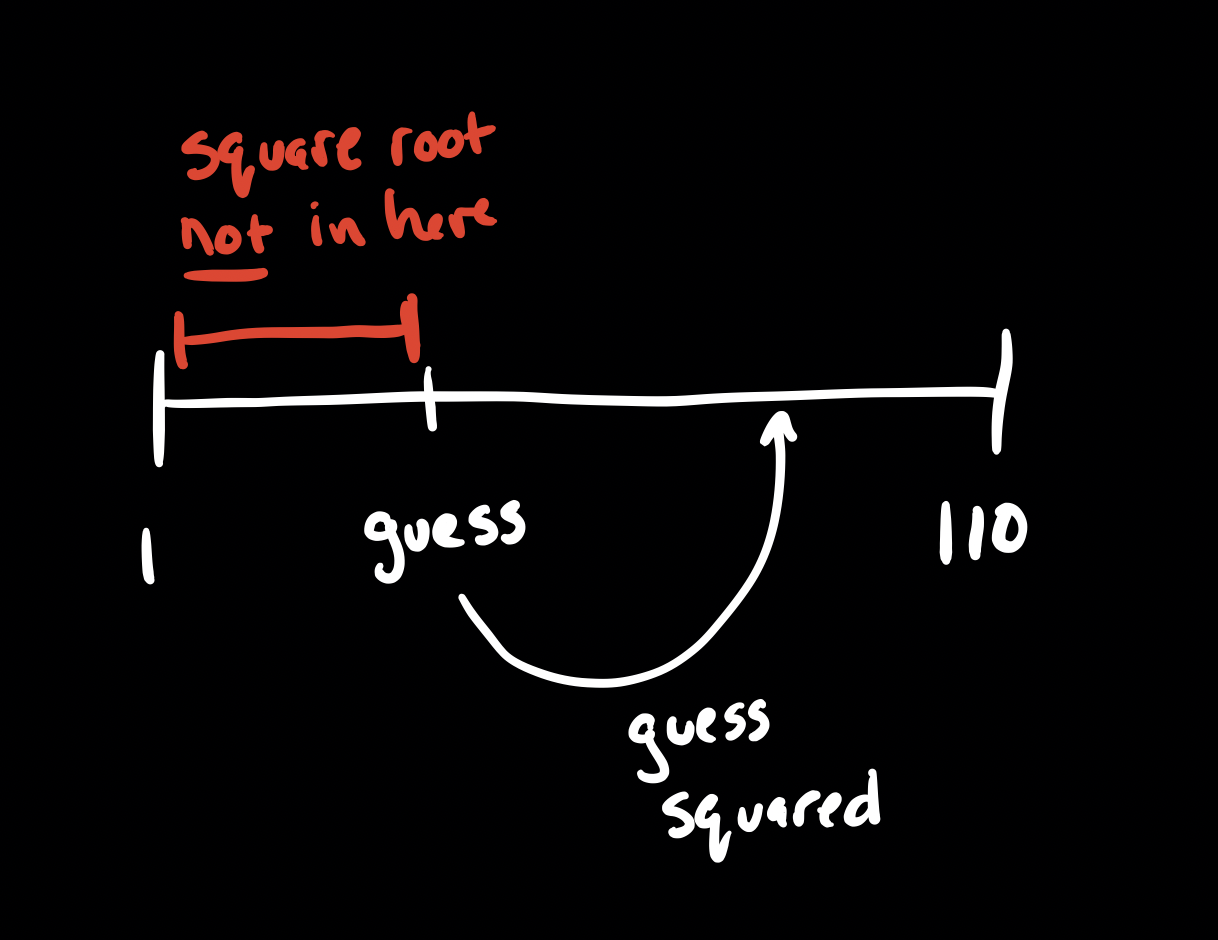 square root
not in here
1
guess
110
guess
squared